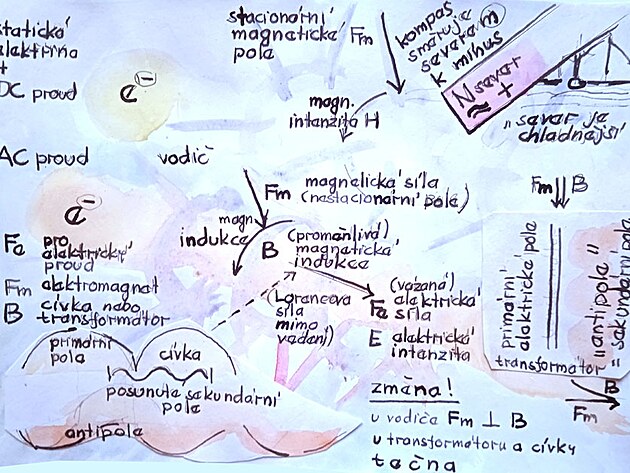 statická
elektřina
+
DC proud
e⁻
stacionární
magnetické Fm
pole
magn.
intenzita H
kompas
směřuje
severem
k minus
N sever
+
„sever je
chladnější"
AC proud
vodič
e⁻
Fm magnetická síla
(nestacionární pole)
magn.
indukce
B (proměnlivá)
magnetická
indukce
Fe pro
elektrický
proud
Fm elektromagnet
B cívka nebo
transformátor
primární
pole
cívka
posunuté sekundární
pole
antipole
(Lorencova
síla
mimo
vedení)
(vázaná)
Fe elektrická
síla
E elektrická
intenzita
Fm B
primární
elektrické pole
"antipole"
= sekundární pole
transformátor
B
Fm
změna!
u vodiče Fm ⊥ B
u transformátoru a cívky
tečna